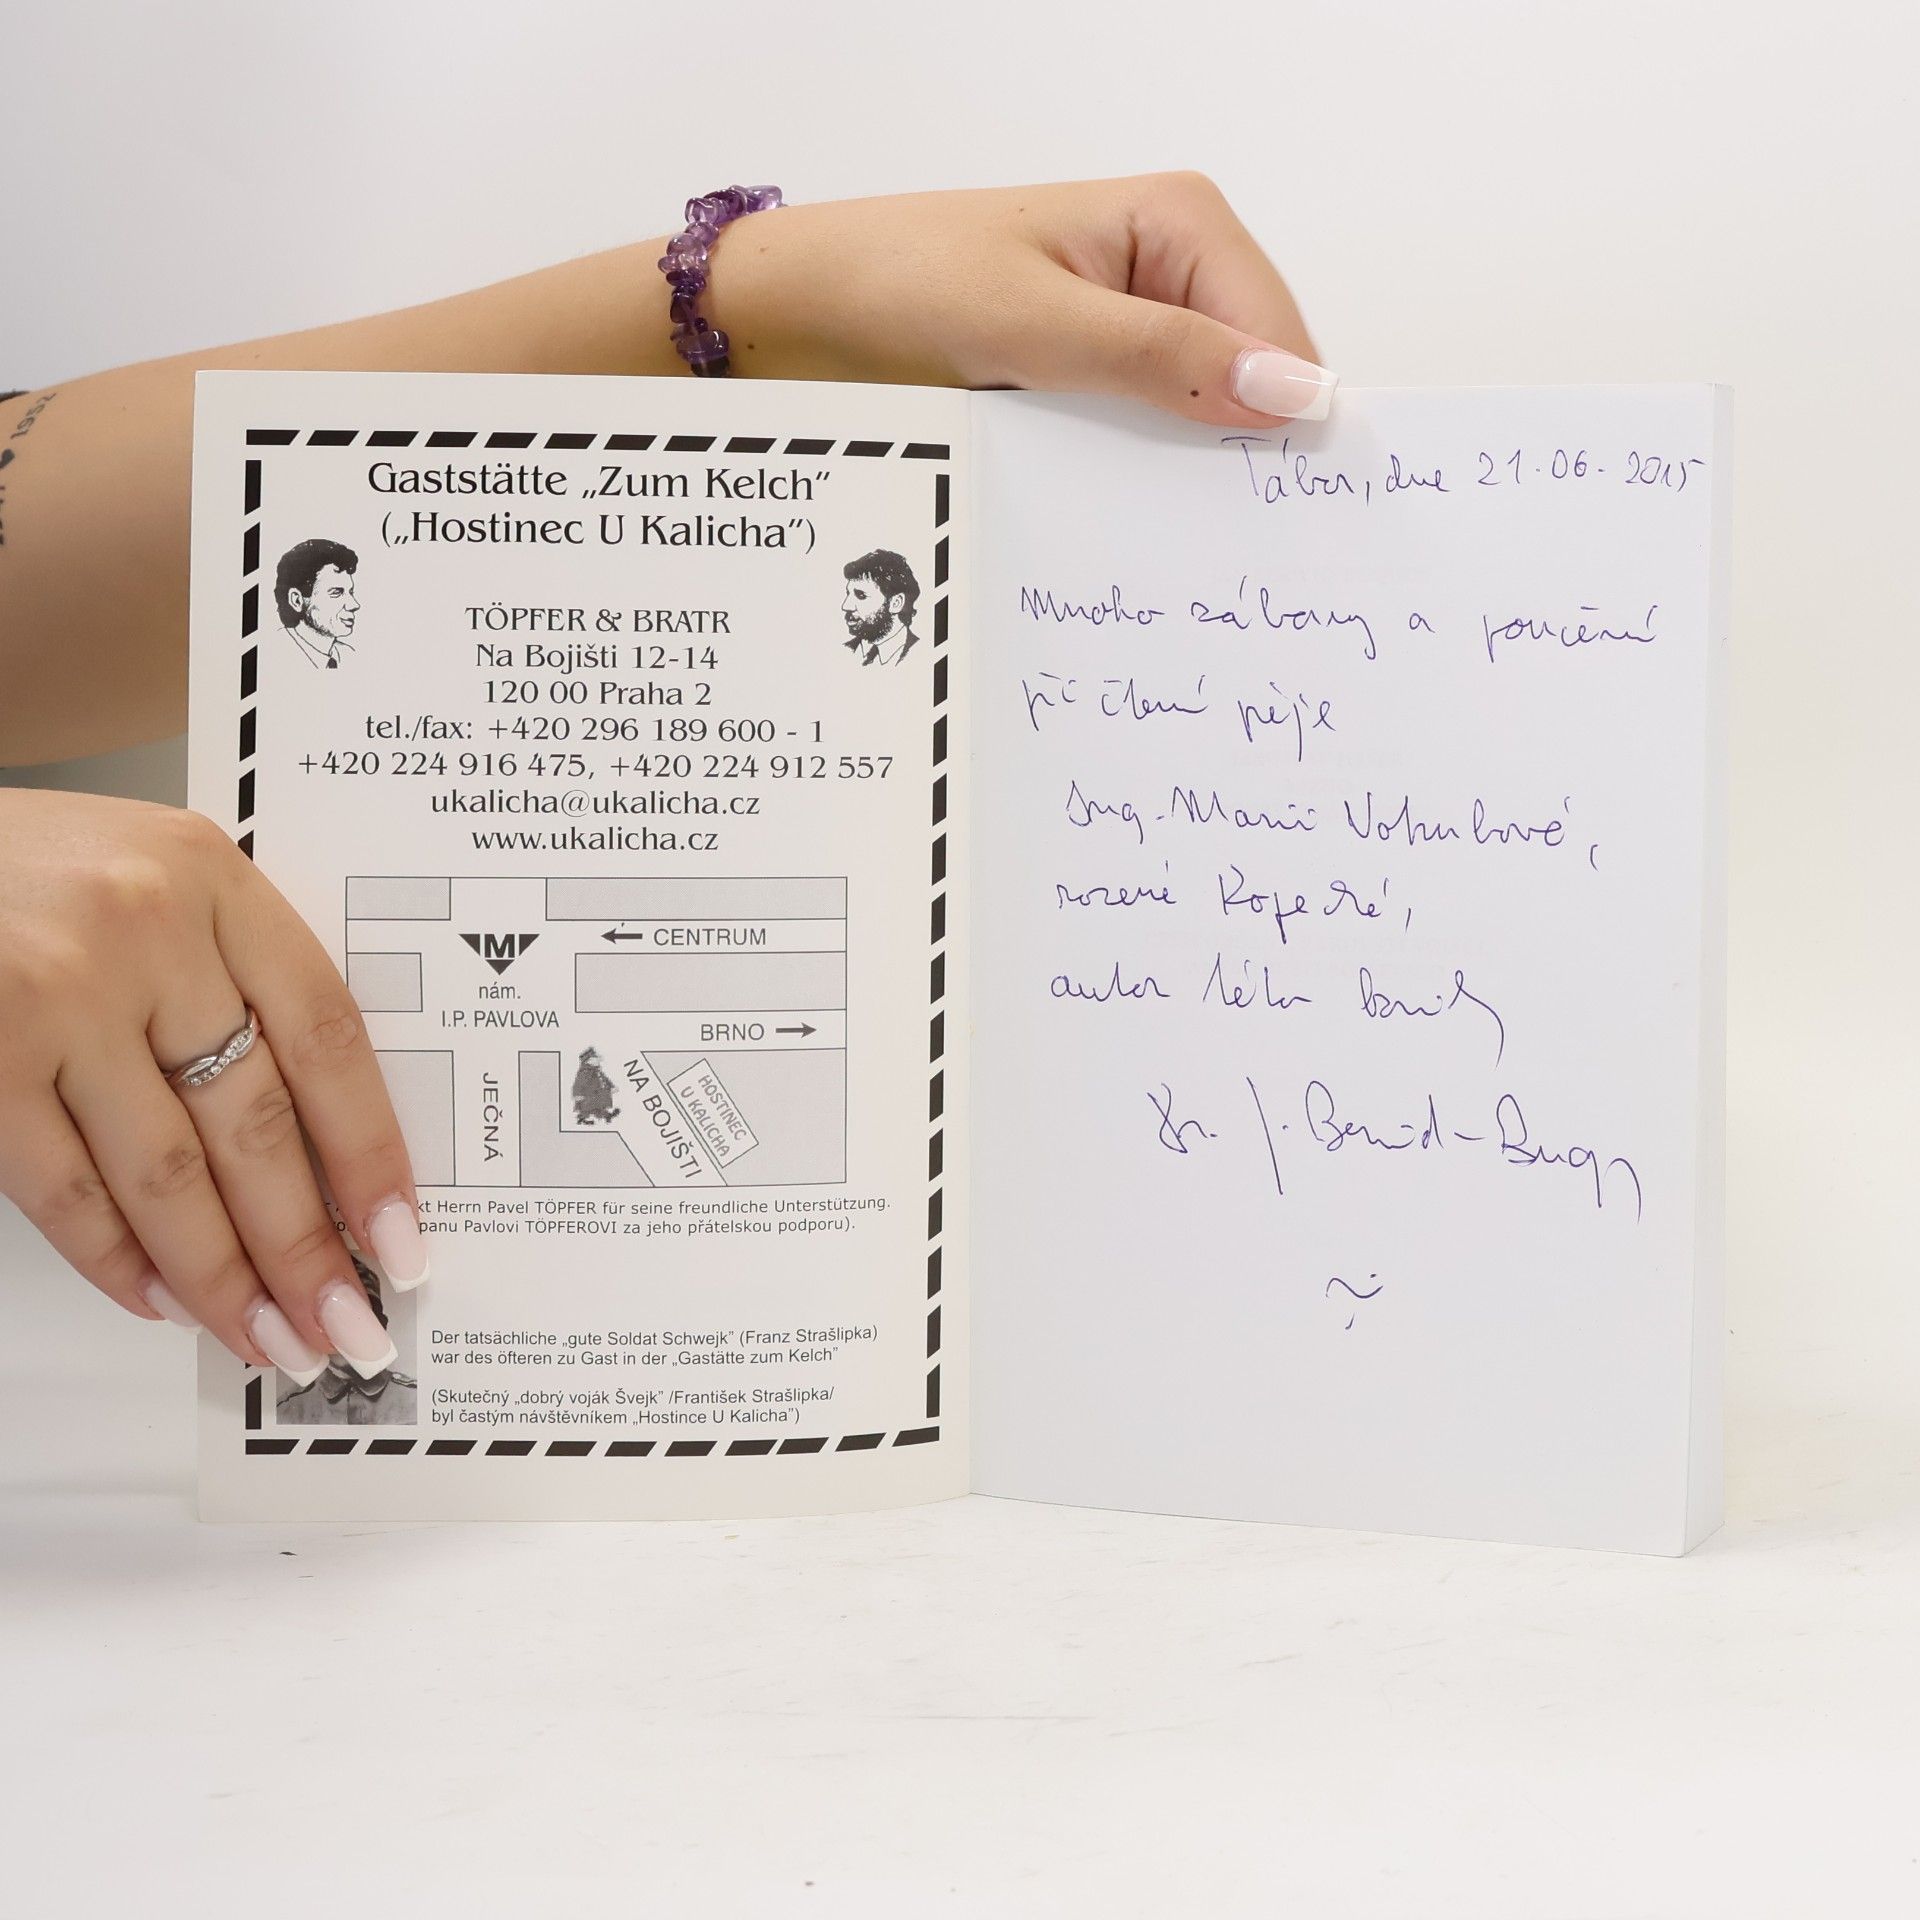 Gaststätte „Zum Kelch”
(„Hostinec U Kalicha”)
TÖPFER & BRATR
Na Bojišti 12-14
120 00 Praha 2
tel./fax: +420 296 189 600 - 1
+420 224 916 475, +420 224 912 557
ukalicha@ukalicha.cz
www.ukalicha.cz
CENTRUM
M
nám.
I.P. PAVLOVA
BRNO
JEČNÁ
NA BOJIŠTI
HOSTINEC
U KALICHA
Herrn Pavel TÖPFER für seine freundliche Unterstützung.
panu Pavlovi TÖPFEROVI za jeho přátelskou podporu).
Der tatsächliche „gute Soldat Schwejk” (Franz Strašlipka)
war des öfteren zu Gast in der „Gastätte zum Kelch”
(Skutečný „dobrý voják Švejk” /František Strašlipka/
byl častým návštěvníkem „Hostince U Kalicha”)
Tábor, dne 21.06.2015
Mnoho zábavy a poučení
při čtení přeje
Ing. Marii Vokurkové,
rozené Kopecké,
autor této knihy
Dr. J. Berwid-Buquoy
1952